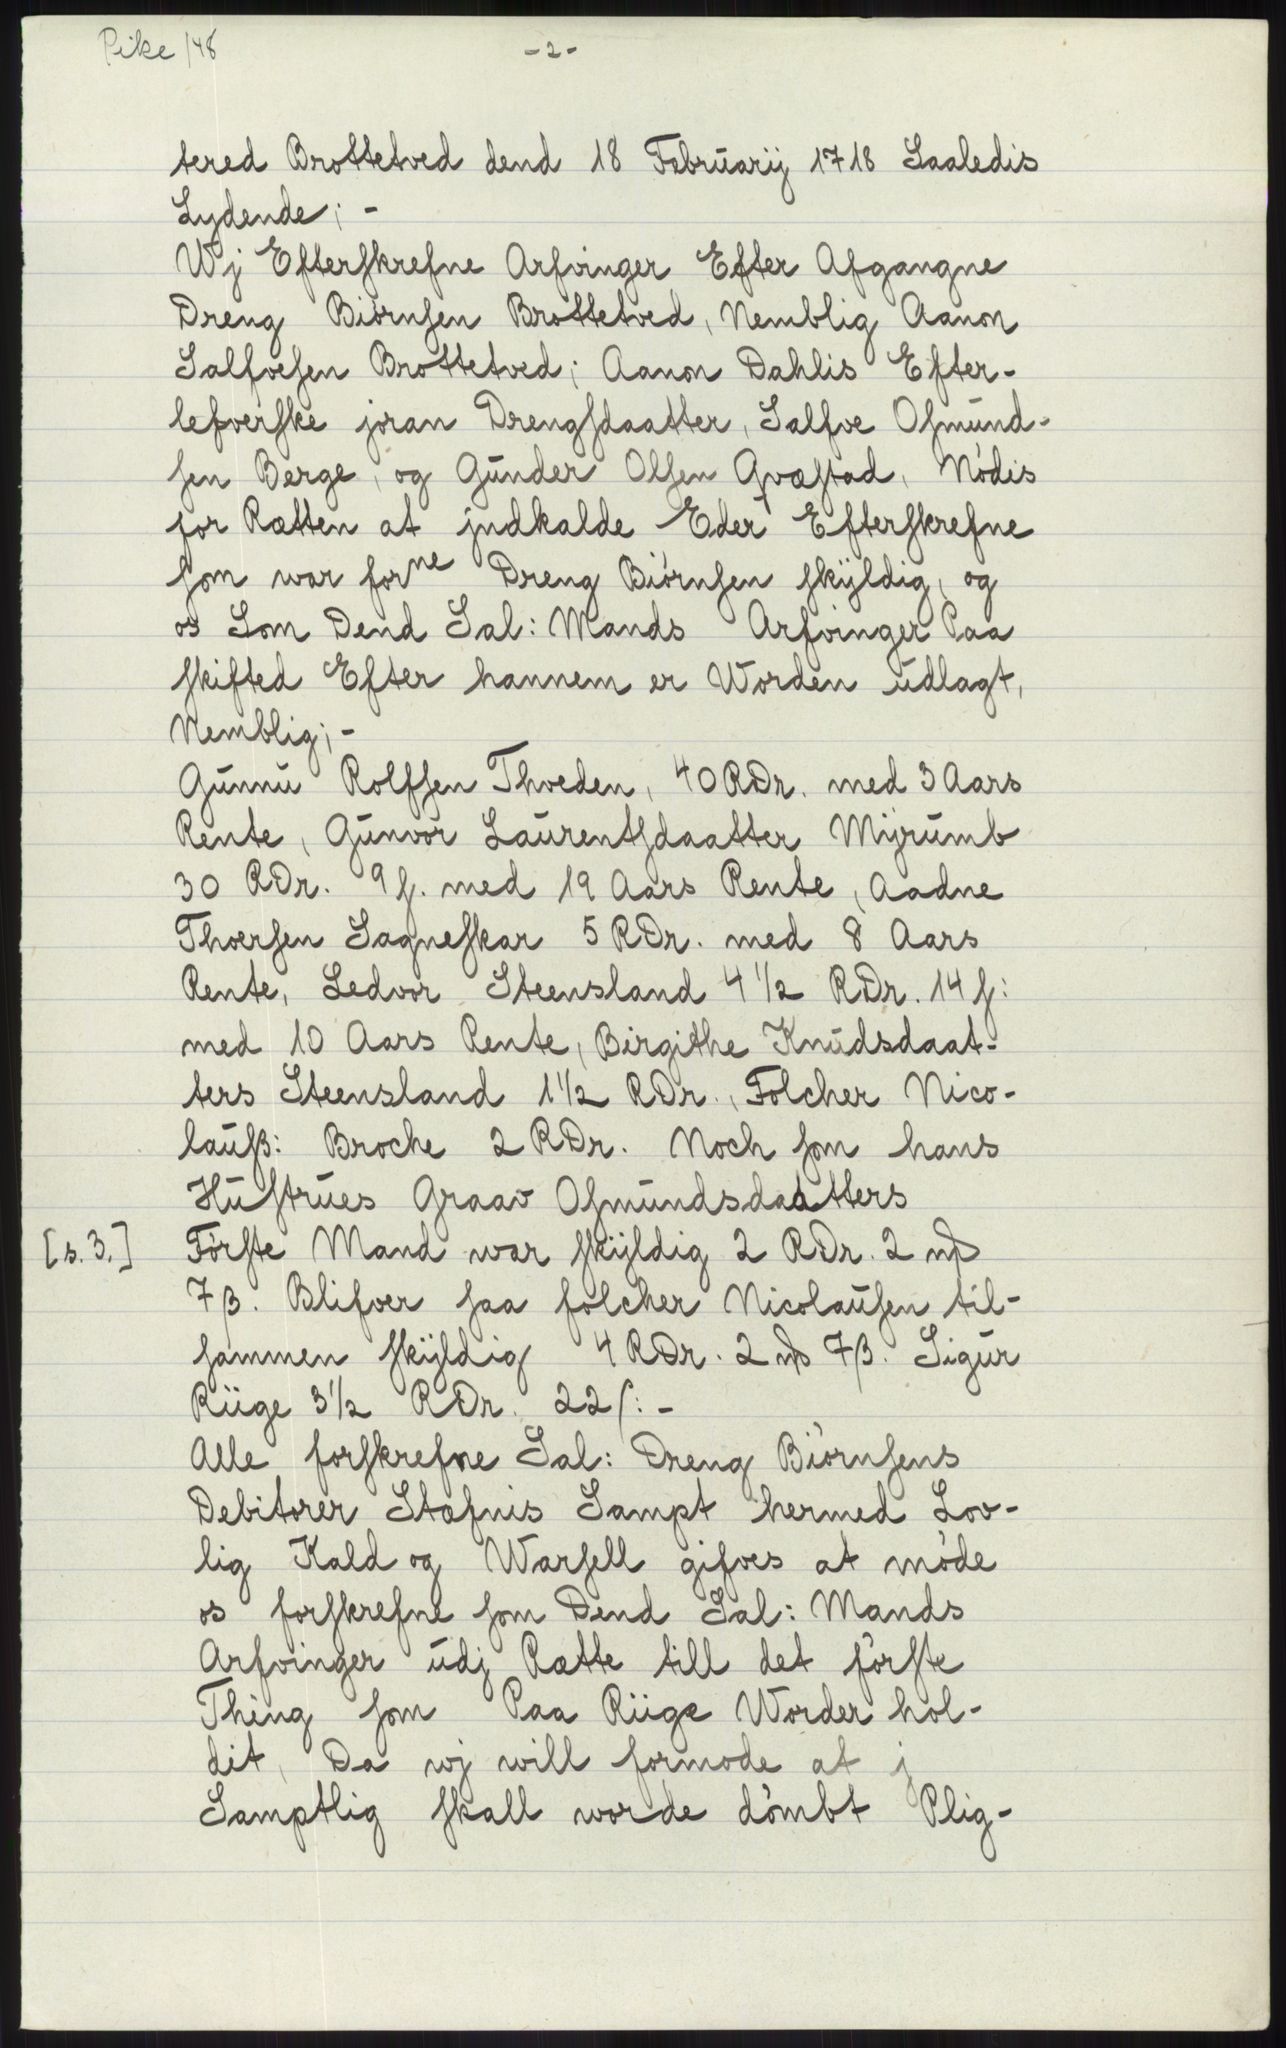 Pike /48
- 2 -
tered Brottetved dend 18 Februarij 1718 Saaledis
Lydende; -
Wj Efterskrefne Arfvinger Efter Afgangne
Dreng Biörnsen Brottetved, Nemblig Aanon
Salfvesen Brottetved; Aanon Dahlis Efter-
lefverske joran Drengsdaatter, Salfve Osmund-
sen Berge, og Gunder Olsen Qvæstad, Nödis
for Rætten at jndkalde Eder Efterskrefne
som war forne Dreng Biörnsen skÿldig, og
os Som Dend Sal: Mands Arfvinger Paa
skifted Efter hannem er Worden udlagt,
Nemblig; -
Gunnu Rolfsen Thveden, 40 RDr. med 3 Aars
Rente, Gunvor Laurentsdaatter Mijrumb
30 RDr. 9 s. med 19 Aars Rente, Aadne
Thorsen Sagneskar 5 RDr. med 8 Aars
Rente, Ledvor Steensland 4 1/2 RDr. 14 s:
med 10 Aars Rente, Birgithe Knudsdaat-
ters Steensland 1 1/2 RDr., Folcher Nico-
lauß: Broche 2 RDr. Noch som hans
Hustrues Graav Osmundsdaatters
[s. 3.] Förste Mand war skÿldig 2 RDr. 2 mƒ
7 β. Blifver saa folcher Nicolausen til-
sammen skÿldig 4 RDr. 2 mƒ 7 β. Sigur
Riige 3 1/2 RDr. 22 s: -
Alle forskrefne Sal: Dreng Biörnsens
Debitorer Stæfnis Sampt hermed Lov-
lig Kald og Warsell gifves at möde
os forskrefne som Dend Sal: Mands
Arfvinger udj Rætte till det förste
Thing som Paa Riige Worder hol-
dit, Da wj will formode at j
Samptlig skall worde dömbt Plig-